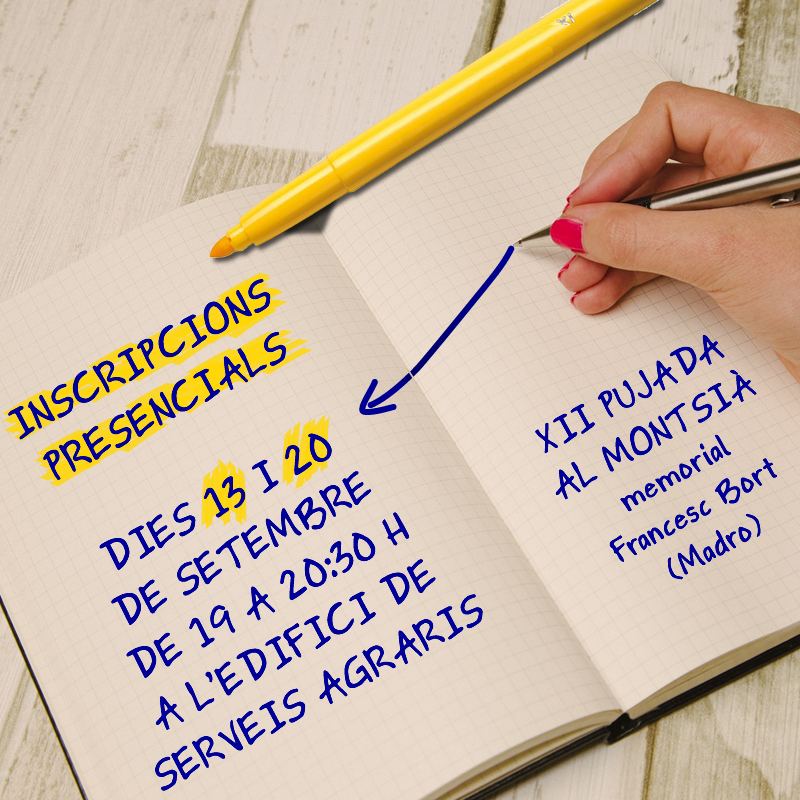 INSCRIPCIONS
PRESENCIALS
DIES 13 I 20
DE SETEMBRE
DE 19 A 20:30 H
A L'EDIFICI DE
SERVEIS AGRARIS
XII PUJADA
AL MONTSIÀ
memorial
Francesc Bort
(Madro)